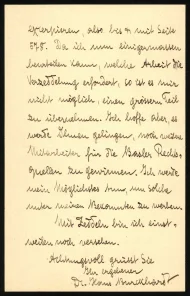 exzerpieren, also bis u. mit Seite
575. Da ich nun einigermassen
beurteilen kann, welche Arbeit die
Verzeddelung erfordert, so ist es mir
nicht möglich, einen grössern Teil
zu übernehmen. Ich hoffe aber, es
werde Ihnen gelingen, noch weitere
Mitarbeiter für die Basler Rechts-
quellen zu gewinnen. Ich werde
mein Möglichstes tun, um solche
unter meinen Bekannten zu werben.
Mit Zeddeln bin ich einst-
weilen noch versehen.
Achtungsvoll grüsst Sie
Ihr ergebener
Dr. Hans Burckhardt